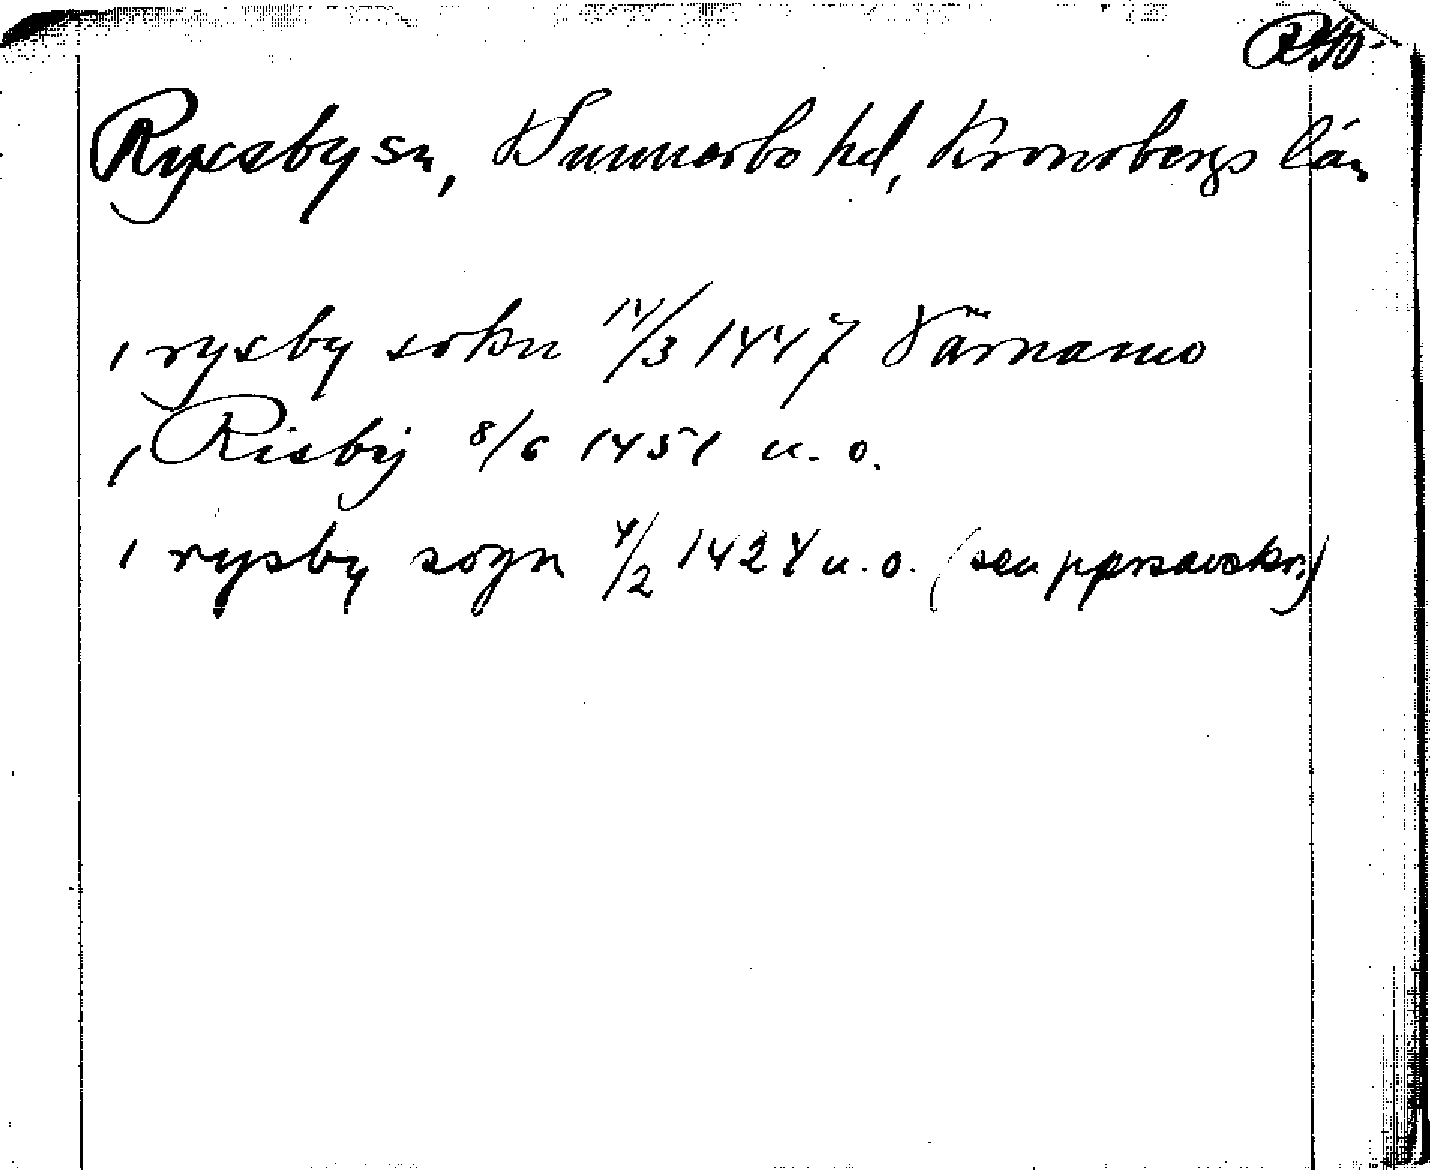 Ryssby sn, Sunnerbo hd, Kronobergs län
i rysby sokn 14/3 1447 Värnamo
i Risby 8/6 1451 u. o.
i rysby sogn 4/2 1424 u. o. (sen pprsavskr.)